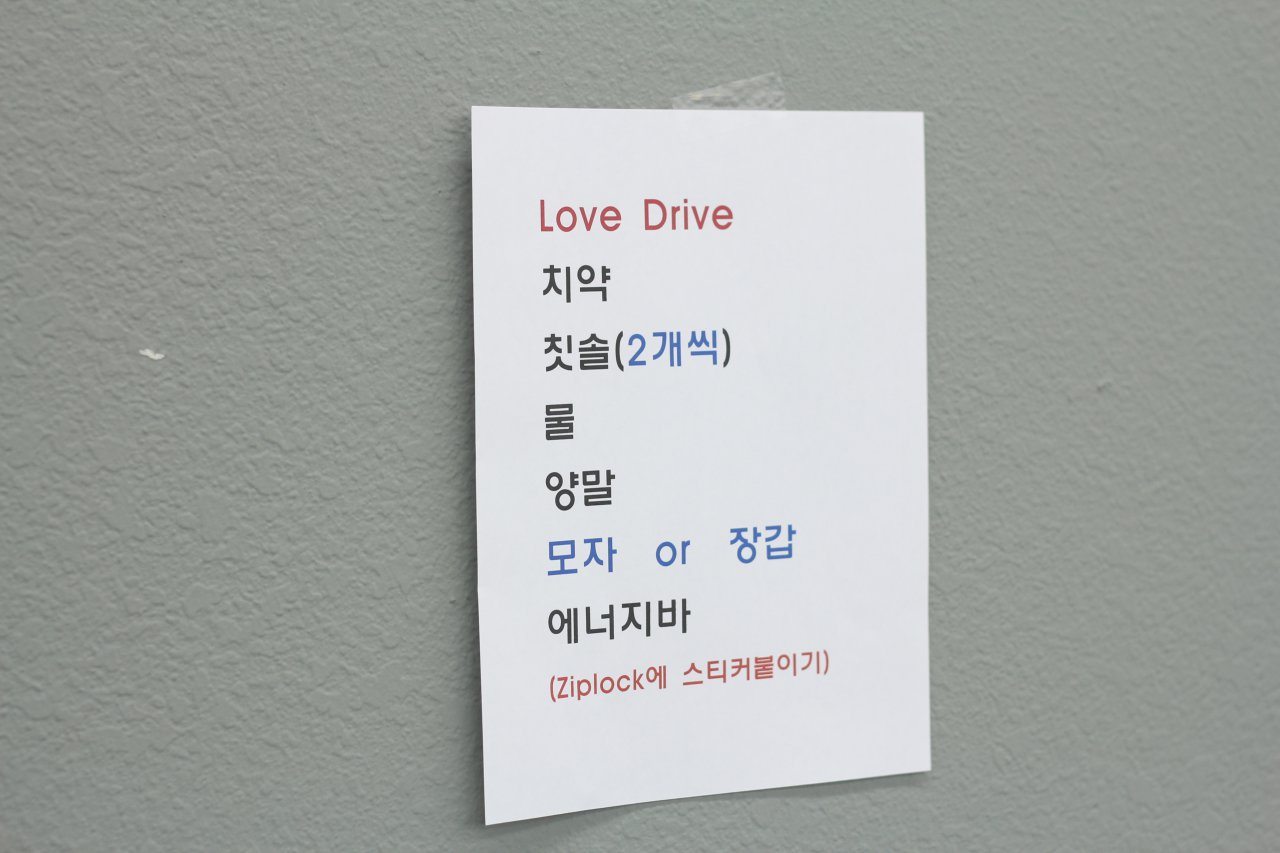 Love Drive
치약
칫솔(2개씩)
물
양말
모자 or 장갑
에너지바
(Ziplock에 스티커붙이기)